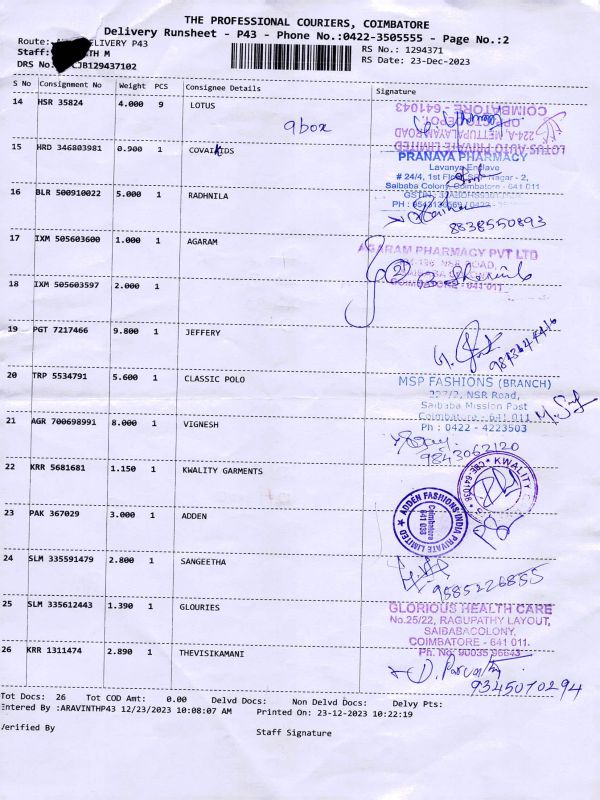 THE PROFESSIONAL COURIERS, COIMBATORE
Delivery Runsheet - P43 - Phone No.:0422-3505555 - Page No.:2
Route: DELIVERY P43
Staff: TH M
DRS No. CJB129437102
RS No.: 1294371
RS Date: 23-Dec-2023
S No Consignment No Weight PCS Consignee Details Signature
14 HSR 35824 4.000 9 LOTUS
9 box
LOTUS AUTO PRIVATE LIMITED
224-A, METTUPALAYAM ROAD
COIMBATORE - 641043
15 HRD 346803981 0.900 1 COVAI KIDS
PRANAYA PHARMACY
Lavanya Enclave
# 24/4, 1st Nagar - 2,
Saibaba Colony, Coimbatore - 641 011
16 BLR 500910022 5.000 1 RADHNILA
8838550893
17 IXM 505603600 1.000 1 AGARAM
AGARAM PHARMACY PVT LTD
NSR ROAD,
COIMBATORE - 641 011
2
18 IXM 505603597 2.000 1
19 PGT 7217466 9.800 1 JEFFERY
20 TRP 5534791 5.600 1 CLASSIC POLO
MSP FASHIONS (BRANCH)
227/2, NSR Road,
Saibaba Mission Post
Coimbatore - 641 011
Ph : 0422 - 4223503
21 AGR 700698991 8.000 1 VIGNESH
9843062120
22 KRR 5681681 1.150 1 KWALITY GARMENTS
KWALITY
CBE. 641038
23 PAK 367029 3.000 1 ADDEN
ADDEN FASHIONS INDIA PRIVATE LIMITED
Coimbatore
641 038
24 SLM 335591479 2.800 1 SANGEETHA
9585226855
25 SLM 335612443 1.390 1 GLOURIES
GLORIOUS HEALTH CARE
No.25/22, RAGUPATHY LAYOUT,
SAIBABACOLONY,
COIMBATORE - 641 011.
Ph. No. 90035 96643
26 KRR 1311474 2.890 1 THEVISIKAMANI
D. Parvathy
9345070294
Tot Docs: 26 Tot COD Amt: 0.00 Delvd Docs: Non Delvd Docs: Delvy Pts:
Entered By :ARAVINTHP43 12/23/2023 10:08:07 AM Printed On: 23-12-2023 10:22:19
Verified By
Staff Signature